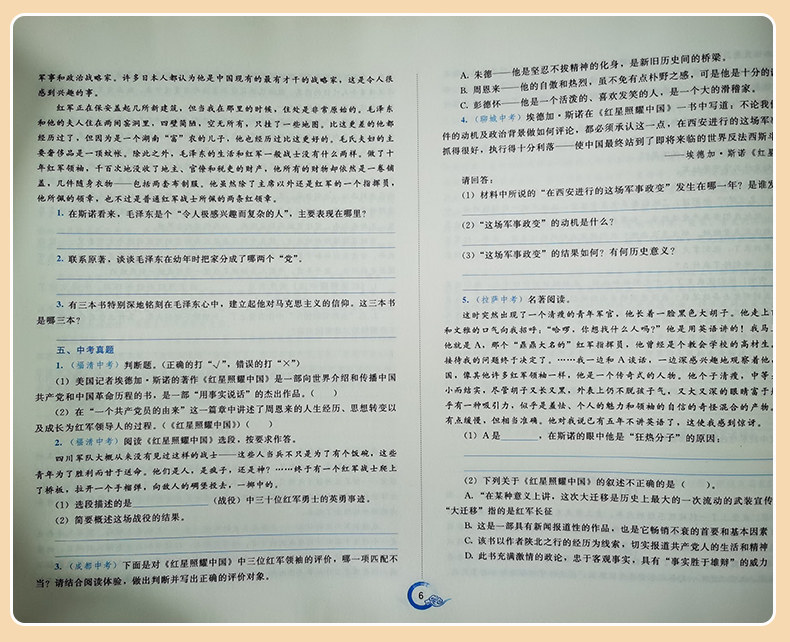 军事和政治战略家。许多日本人都认为他是中国现有的最有才干的战略家，这是令人很
感到兴趣的事。
红军正在保安盖起几所新建筑，但当我在那里的时候，住处是非常原始的。毛泽东
和他的夫人住在两间窑洞里，四壁简陋，空无所有，只挂了一些地图。比这更差的他都
经历过了，但因为是一个湖南“富”农的儿子，他也经历过比这更好的。毛氏夫妇的主
要奢侈品是一顶蚊帐。除此之外，毛泽东的生活和红军一般战士没有什么两样。做了十
年红军领袖，千百次地没收了地主、官僚和税吏的财产，他所有的财物却依然是一卷铺
盖，几件随身衣物——包括两套布制服。他虽然除了主席以外还是红军的一个指挥员，
他所佩的领章，也不过是普通红军战士所佩的两条红领章。
1. 在斯诺看来，毛泽东是个“令人极感兴趣而复杂的人”，主要表现在哪里？
2. 联系原著，谈谈毛泽东在幼年时把家分成了哪两个“党”。
3. 有三本书特别深地铭刻在毛泽东心中，建立起他对马克思主义的信仰。这三本书
是哪三本？
五、中考真题
1.（福清中考）判断题。（正确的打“√”，错误的打“×”）
（1）美国记者埃德加·斯诺的著作《红星照耀中国》是一部向世界介绍和传播中国
共产党和中国革命历程的书，是一部“用事实说话”的杰出作品。（　　）
（2）在“一个共产党员的由来”这一篇章中讲述了周恩来的人生经历、思想转变以
及成长为红军领导人的过程。（《红星照耀中国》）（　　）
2.（福清中考）阅读《红星照耀中国》选段，按要求作答。
四川军队大概从来没有见过这样的战士——这些人当兵不只是为了有个饭碗，这些
青年为了胜利而甘于送命。他们是人，是疯子，还是神？……终于有一个红军战士爬上
了桥板，拉开一个手榴弹，向敌人的碉堡投去，一掷中的。
（1）选段描述的是____________（战役）中三十位红军勇士的英勇事迹。
（2）简要概述这场战役的结果。
3.（成都中考）下面是对《红星照耀中国》中三位红军领袖的评价，哪一项匹配不
当？请结合阅读体验，做出判断并写出正确的评价对象。
A. 朱德——他是坚忍不拔精神的化身，是新旧历史间的桥梁。
B. 周恩来——他的自傲和热烈，虽不免有点朴野之感，可是他是十分的
C. 彭德怀——他是一个活泼的、喜欢发笑的人，是一个大的滑稽家。
4.（聊城中考）埃德加·斯诺在《红星照耀中国》一书中写道，不论我
件的动机及政治背景做如何评论，都必须承认这一点，在西安进行的这场军事
抓得很好，执行得十分利落——使中国最终站到了即将来临的世界反法西斯
——埃德加·斯诺《红星
请回答：
（1）材料中所说的“在西安进行的这场军事政变”发生在哪一年？是谁发
（2）“这场军事政变”的动机是什么？
（3）“这场军事政变”的结果如何？有何历史意义？
5.（拉萨中考）名著阅读。
这时突然出现了一个清瘦的青年军官，他长着一脸黑色大胡子。他走上
和文雅的口气向我招呼：“哈啰，你想找什么人吗？”他是用英语讲的！我马
他就是A，那个“鼎鼎大名的”红军指挥员，他曾经是个教会学校的高材生。
接待我的问题终于决定了。……我一边和A谈话，一边深感兴趣地观察着他，
国，像其他许多红军领袖一样，他是一个传奇式的人物。他个子清瘦，中等
小而结实，尽管胡子又长又黑，外表上仍不脱孩子气，又大又深的眼睛富于
乎有一种吸引力，似乎是羞怯、个人的魅力和领袖的自信的奇怪混合的产物。
有点缓慢，但相当准确。他对我说已有五年不讲英语了，这使我感到惊讶。
（1）A是______，在斯诺的眼中他是“狂热分子”的原因：
（2）下列关于《红星照耀中国》的叙述不正确的是（　　）。
A. “在某种意义上讲，这次大迁移是历史上最大的一次流动的武装宣传
“大迁移”指的是红军长征
B. 这是一部具有新闻报道性的作品，也是它畅销不衰的首要和基本因素
C. 该书以作者陕北之行的经历为线索，切实报道共产党人的生活和精神
D. 此书充满激情的政论，忠于客观事实，具有“事实胜于雄辩”的威力
6